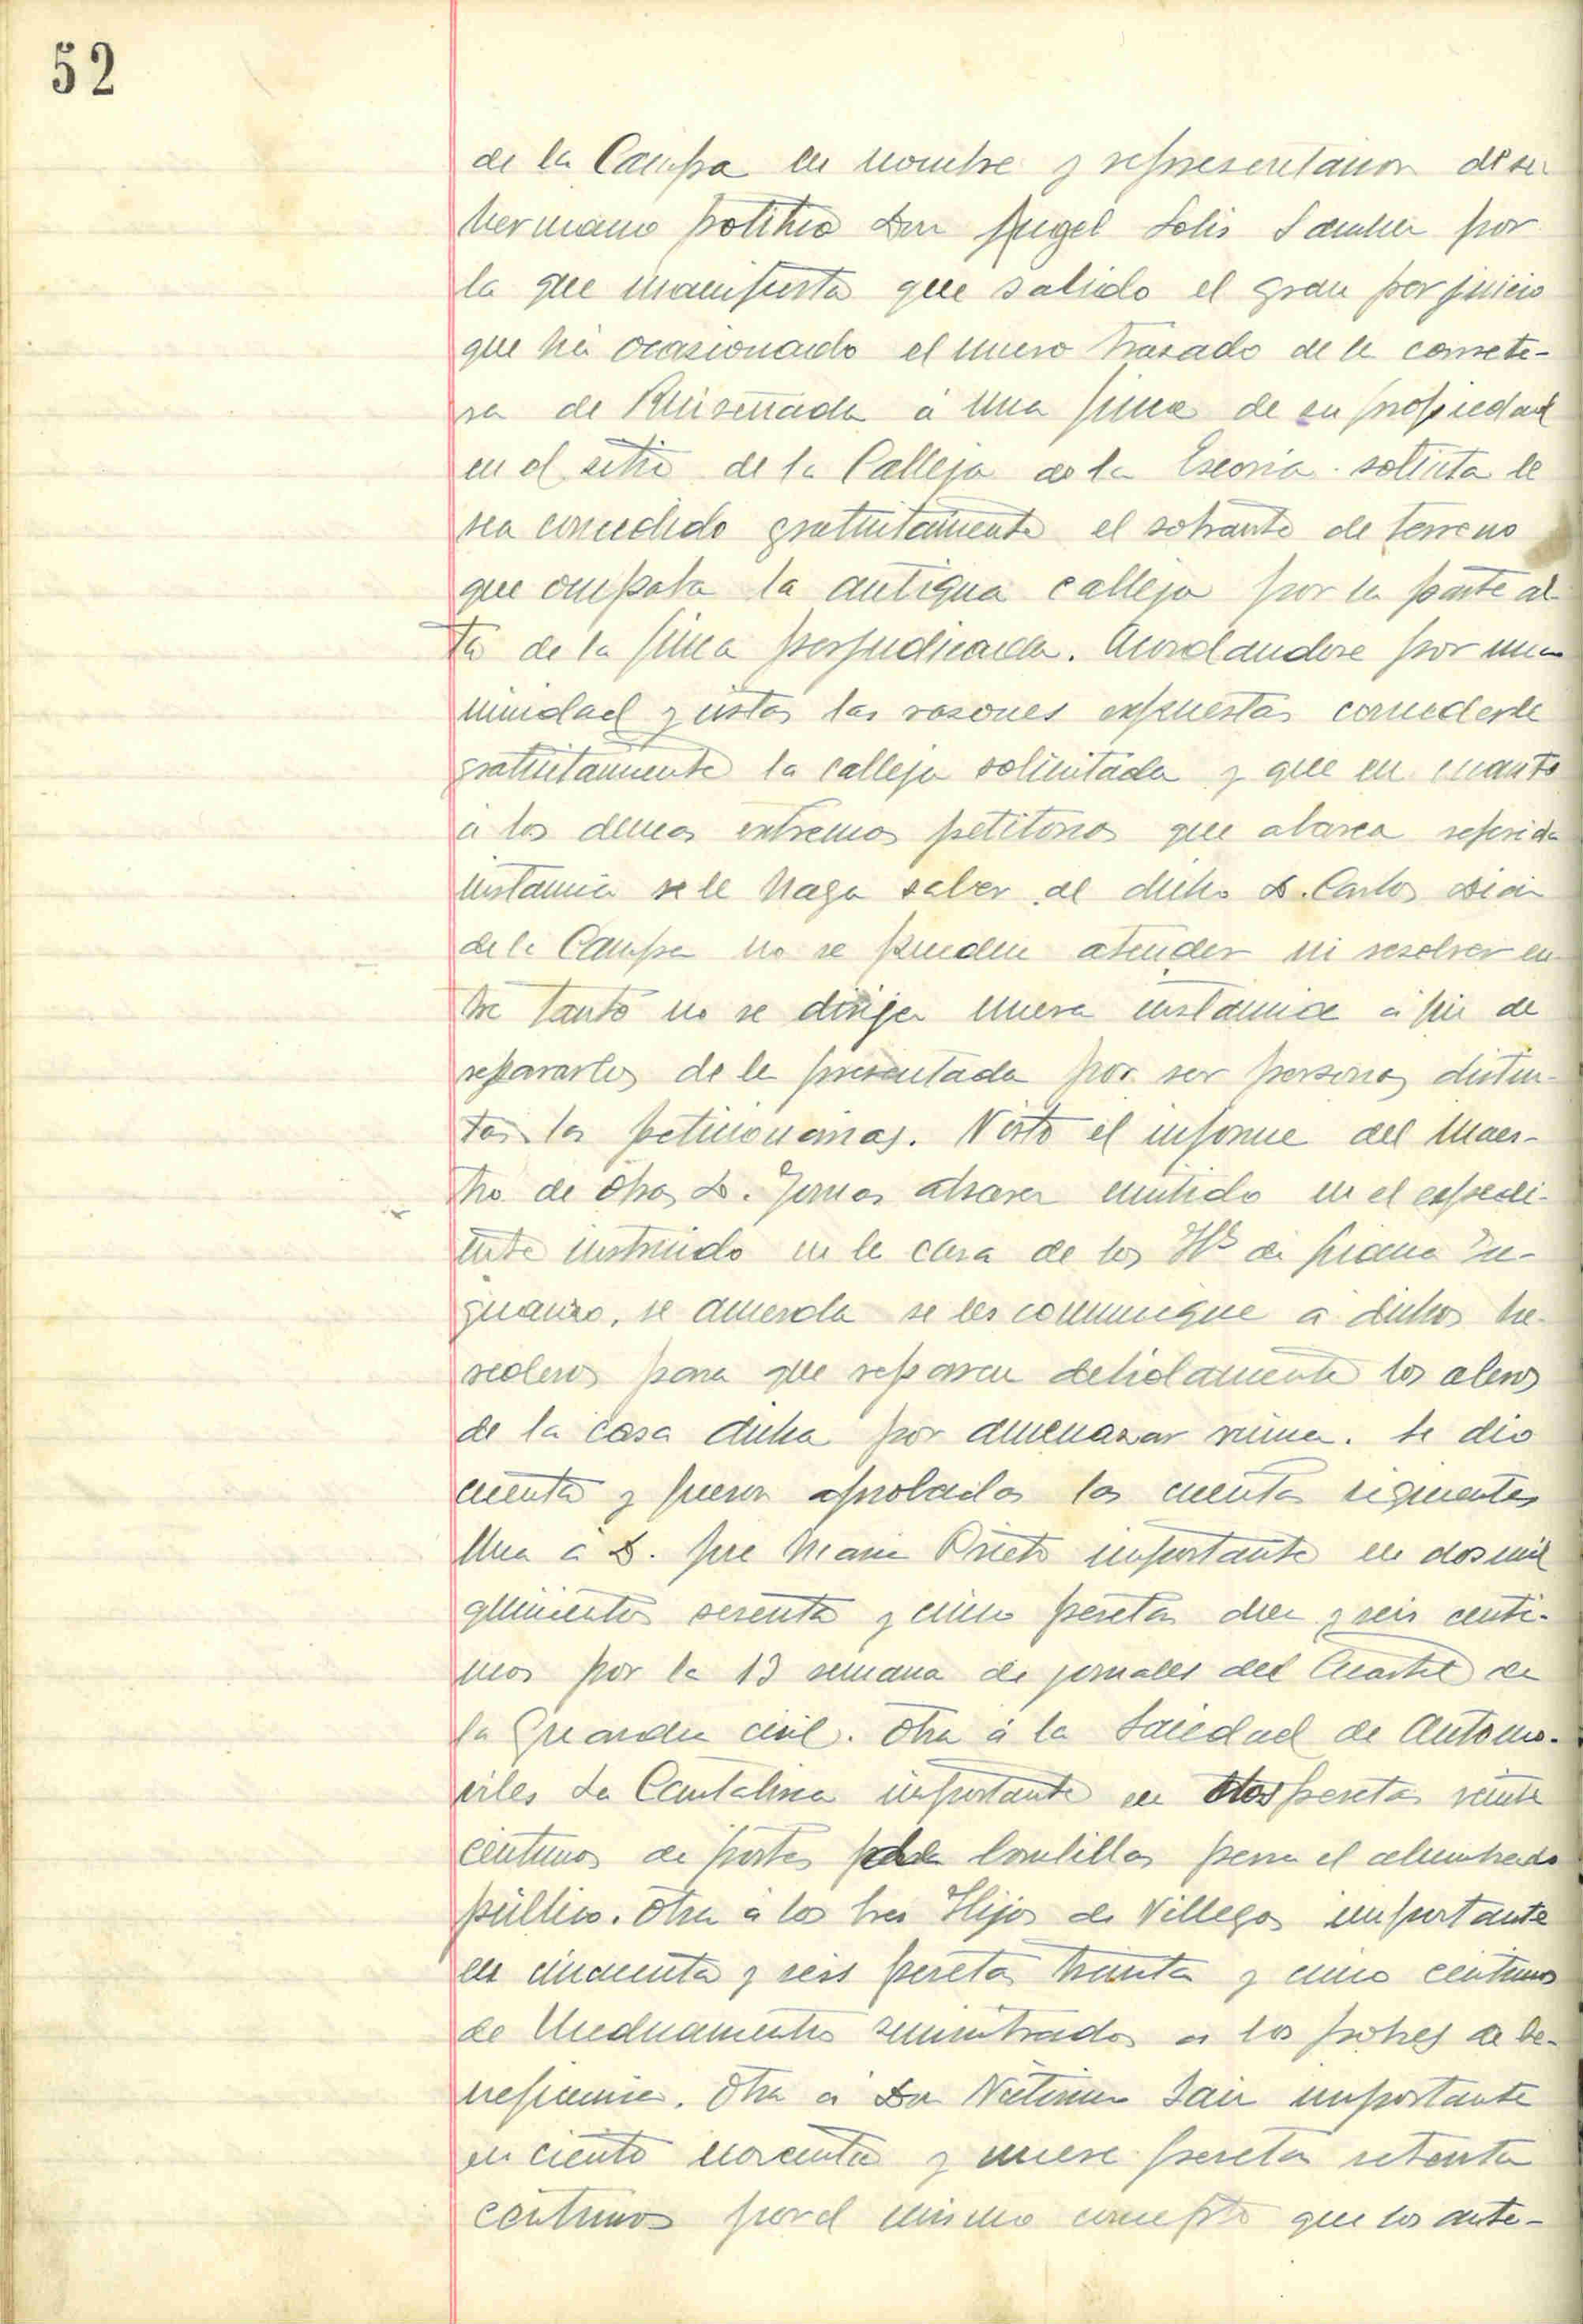 52
de la Campa en nombre y representacion de su
hermano politico Don Angel Solis Sanchez por
la que manifiesta que sabido el gran perjuicio
que ha ocasionado el nuevo trazado de la carrete-
ra de Ruiseñada á una finca de su propiedad
en el sitio de la Calleja de la Escoria. solicita le
sea concedido gratuitamente el sobrante de terreno
que ocupaba la antigua calleja por la parte al
ta de la finca perjudicada. Acordandose por una
nimidad y vistas las razones expuestas concederle
gratuitamente la calleja solicitada y que en cuanto
á los demas extremos petitorios que abarca referida
instancia se le haga saber al dicho D. Carlos Diaz
de la Campa no se pueden atender ni resolver en
tre tanto no se dirija nueva instancia á fin de
separarlos de la presentada por ser personas distin-
tas las peticionarias. Visto el informe del Maes-
tro de obras D. emitido en el expedi-
ente instruido en la casa de los Hs de
se acuerda se les comunique a dichos he-
rederos para que reparen debidamente los aleros
de la casa dicha por amenazar ruina. Se dio
cuenta y fueron aprobadas las cuentas siguientes
Una á D. Jose Maria Prieto importante en dos mil
quinientas sesenta y cinco pesetas diez y seis centi-
mos por la 13 semana de jornales del Cuartel de
la Guardia civil. Otra á la Sociedad de Automo-
viles La Cantabra importante en dos pesetas veinte
centimos de portes de bombillas para el alumbrado
público. Otra á los tres Hijos de Villegas importante
en cincuenta y seis pesetas treinta y cinco centimos
de Medicamentos suministrados a los pobres de be-
neficencia. Otra a Don importante
en ciento noventa y nueve pesetas setenta
centimos por el mismo concepto que los ante-